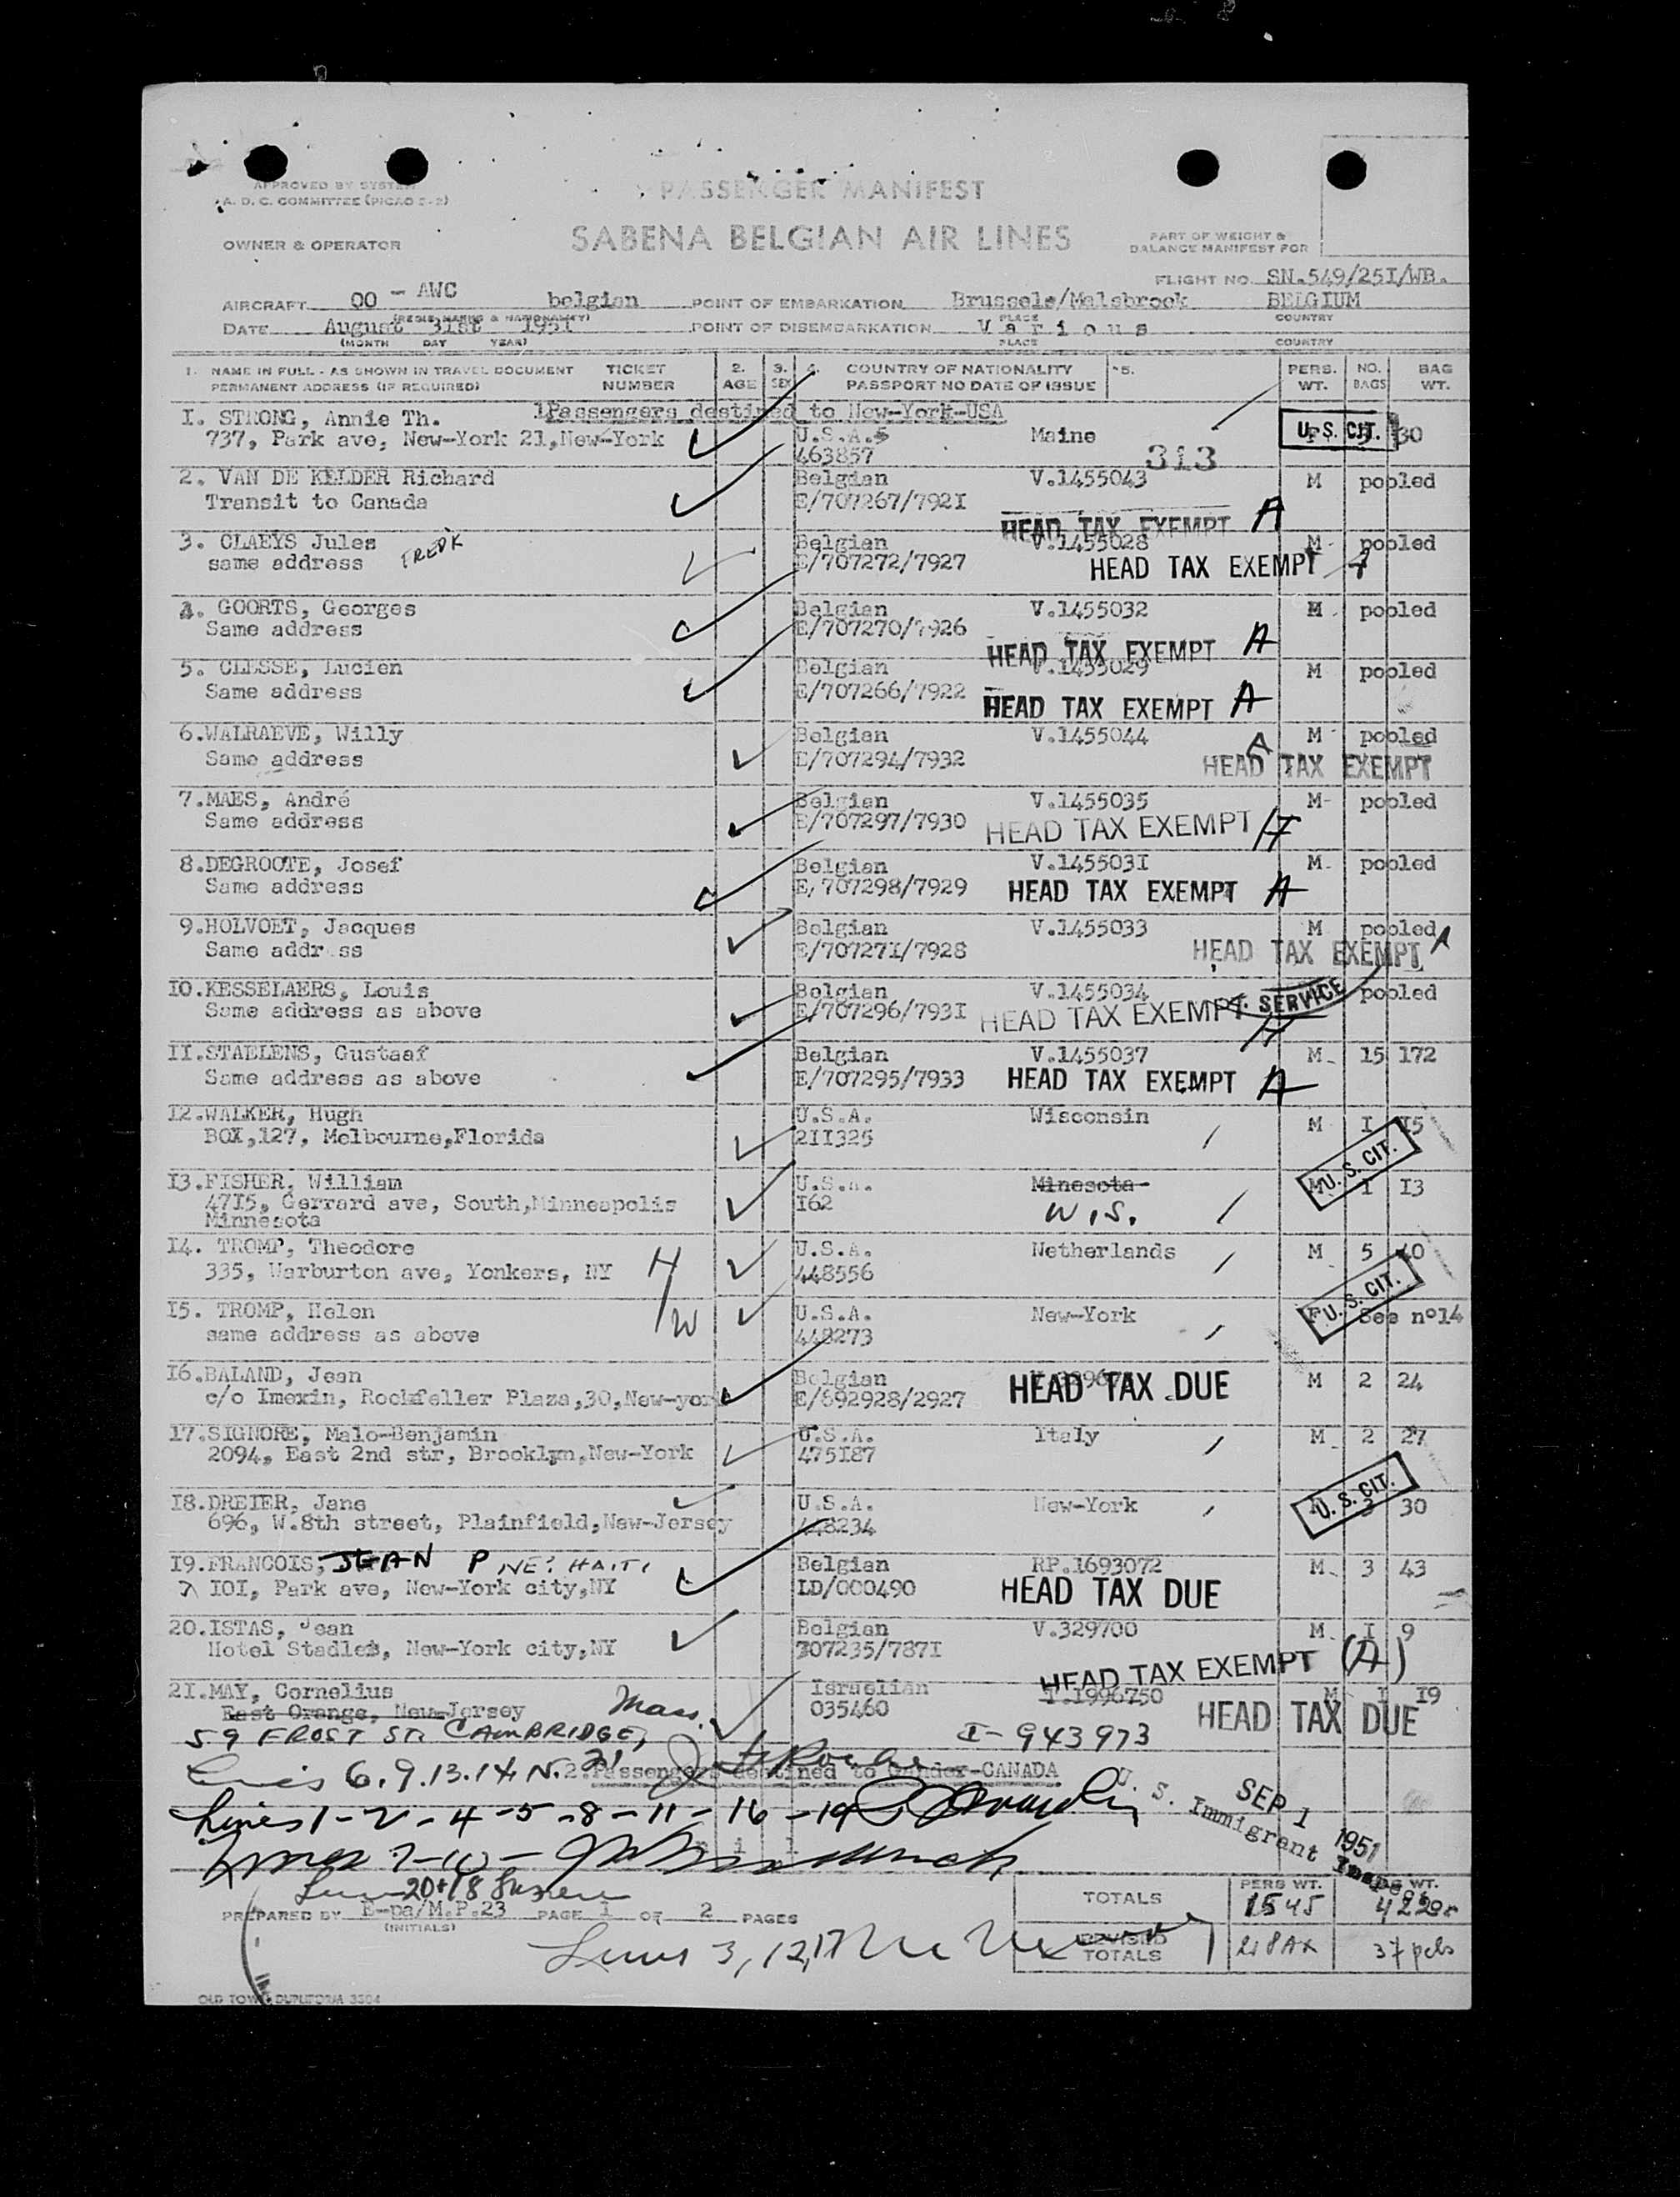 APPROVED BY SYSTEM
A. D. C. COMMITTEE (PICAO 2-2)
PASSENGER MANIFEST
OWNER & OPERATOR
SABENA BELGIAN AIR LINES
PART OF WEIGHT &
BALANCE MANIFEST FOR
FLIGHT NO. SN.549/25I/WB.
AIRCRAFT OO - AWC belgian POINT OF EMBARKATION Brussels/Melsbroek BELGIUM
(REGIS. MARKS & NATIONALITY) PLACE COUNTRY
DATE August 31st 195I POINT OF DISEMBARKATION V a r i o u s
(MONTH DAY YEAR) PLACE COUNTRY
1. NAME IN FULL - AS SHOWN IN TRAVEL DOCUMENT TICKET 2. 3. 4. COUNTRY OF NATIONALITY 5. PERS. NO. BAG
PERMANENT ADDRESS (IF REQUIRED) NUMBER AGE SEX PASSPORT NO DATE OF ISSUE WT. BAGS WT.
1Passengers destined to New-York-USA
I. STRONG, Annie Th. U.S.A. Maine U.S. CIT. 30
737, Park ave, New-York 21,New-York 463857 313
2. VAN DE KELDER Richard Belgian V.1455043 M pooled
Transit to Canada E/707267/792I
HEAD TAX EXEMPT A
3. CLAEYS Jules FREDK Belgian V.1455028 M pooled
same address E/707272/7927 HEAD TAX EXEMPT A
4. GOORTS, Georges Belgian V.1455032 M pooled
Same address E/707270/7926
HEAD TAX EXEMPT A
5. CLESSE, Lucien Belgian V.1455029 M pooled
Same address E/707266/7922 HEAD TAX EXEMPT A
6.WALRAEVE, Willy Belgian V.1455044 A M pooled
Same address E/707294/7932 HEAD TAX EXEMPT
7.MAES, André Belgian V.1455035 M pooled
Same address E/707297/7930 HEAD TAX EXEMPT A
8.DEGROOTE, Josef Belgian V.145503I M pooled
Same address E/707298/7929 HEAD TAX EXEMPT A
9.HOLVOET, Jacques Belgian V.1455033 M pooled
Same addr ss E/70727I/7928 HEAD TAX EXEMPT A
IO.KESSELAERS, Louis Belgian V.1455034 pooled
Same address as above E/707296/793I HEAD TAX EXEMPT SERVICE A
II.STAELENS, Gustaaf Belgian V.1455037 M 15 172
Same address as above E/707295/7933 HEAD TAX EXEMPT A
I2.WALKER, Hugh U.S.A. Wisconsin M I I5
BOX,127, Melbourne,Florida 2II325 U.S. CIT.
I3.FISHER, William U.S.A. Minesota M I I3
47I5, Gerrard ave, South,Minneapolis I62 WIS.
Minnesota
I4. TROMP, Theodore U.S.A. Netherlands M 5 40
335, Warburton ave, Yonkers, NY H/W 448556 U.S. CIT.
I5. TROMP, Helen U.S.A. New-York F See n°14
same address as above 448273
I6.BALAND, Jean Belgian M 2 24
c/o Imexin, Rockfeller Plaza,30,New-york E/692928/2927 HEAD TAX DUE
I7.SIGNORE, Malo-Benjamin U.S.A. Italy M 2 27
2094, East 2nd str, Brooklyn,New-York 475I87
I8.DREIER, Jane U.S.A. New-York U.S. CIT. 3 30
696, W.8th street, Plainfield,New-Jersey 448234
I9.FRANCOIS, JEAN P NE: HAITI Belgian RP.1693072 M 3 43
IOI, Park ave, New-York city,NY LD/000490 HEAD TAX DUE
20.ISTAS, Jean Belgian V.329700 M I 9
Hotel Stadler, New-York city,NY 307235/787I HEAD TAX EXEMPT (A)
2I.MAY, Cornelius Israelian I.1996750 M I I9
East Orange, New-Jersey Mass. 035460 HEAD TAX DUE
59 FROST ST. CAMBRIDGE, I-943973
Lines 6.9.13.14 21 2.Passengers destined to Gander-CANADA
Lines 1-2-4-5-8-11-16-19
U. S. Immigrant Inspector SEP 1 1951
n i l
Lines 7-10-
Lines 20+18
PREPARED BY E-pa/M.P.23 PAGE 1 OF 2 PAGES
(INITIALS)
PERS WT. WT.
TOTALS 1545 422
Lines 3,12,17
REVISED TOTALS 21 PAX 37 pcbs
OLD TOWN DUPLIFORM 3304